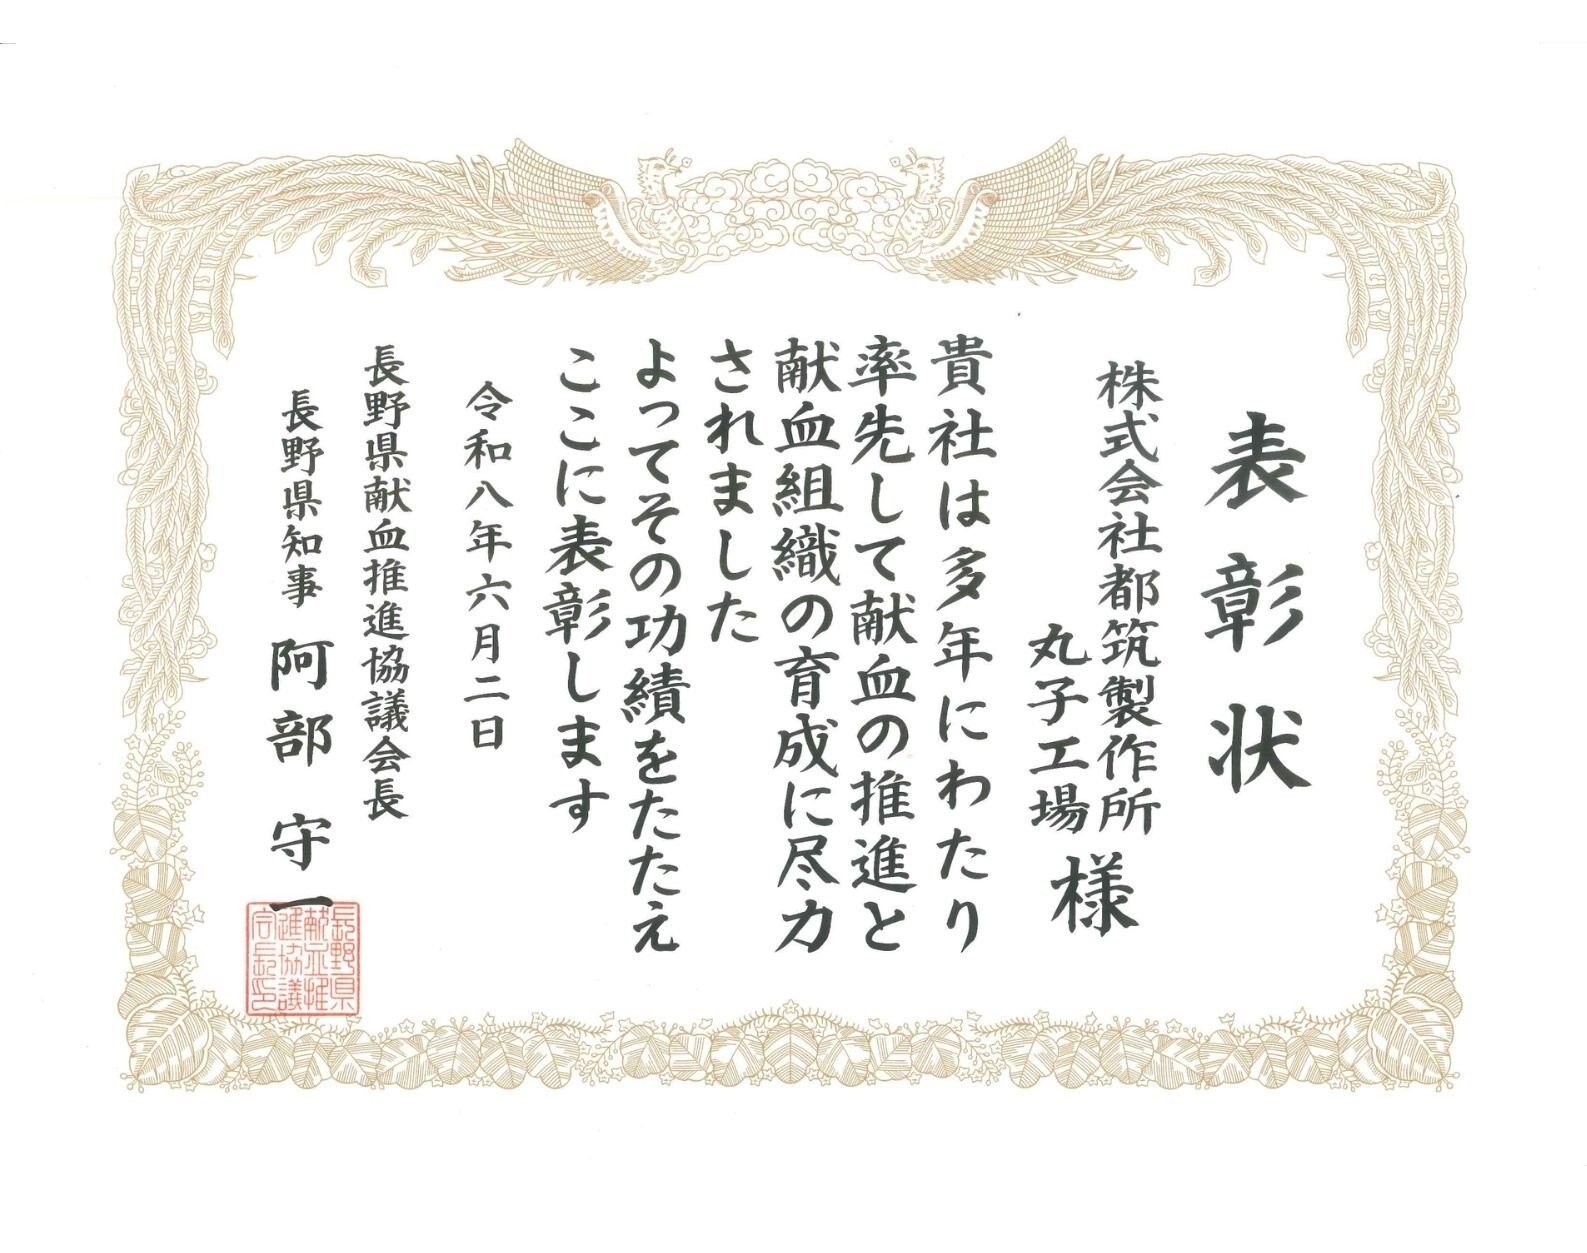 表彰状
株式会社都筑製作所
丸子工場 様
貴社は多年にわたり
率先して献血の推進と
献血組織の育成に尽力
されました
よってその功績をたたえ
ここに表彰します
令和八年六月二日
長野県献血推進協議会長
長野県知事 阿部 守一
長野県
献血推
進協議
会長印